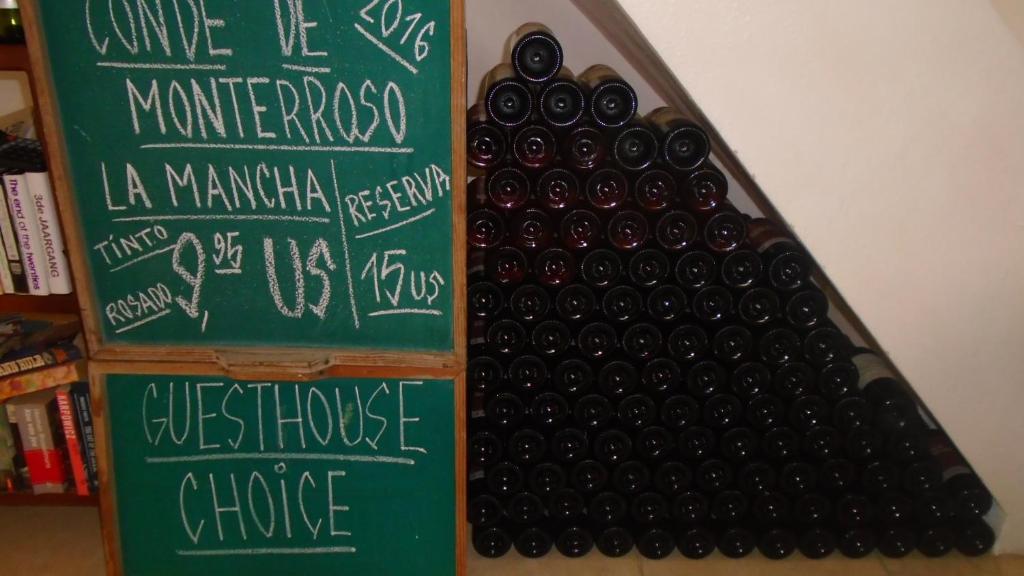 CONDE DE 2016
MONTERROSO
LA MANCHA
TINTO 9,95 US
ROSADO
RESERVA
15 US
GUESTHOUSE
CHOiCE
3de JAARGANG
The end of the twenties